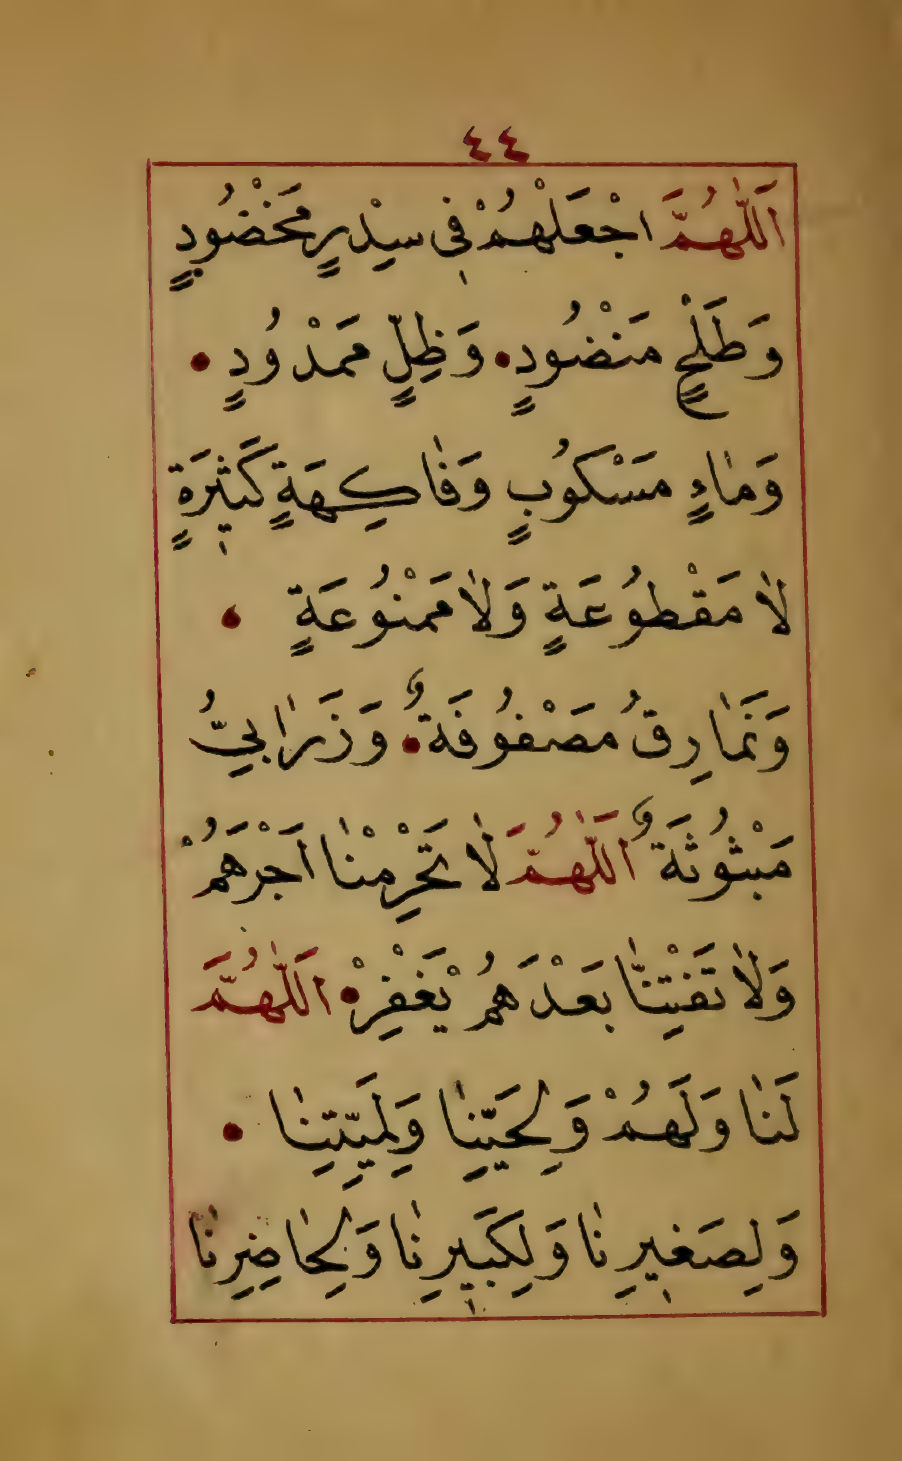 ٤٤
اَللّٰهُمَّ اجْعَلْهُمْ فٖى سِدْرٍ مَخْضُودٍ
وَطَلْحٍ مَنْضُودٍ • وَظِلٍّ مَمْدُودٍ •
وَمَاءٍ مَسْكُوبٍ وَفَاكِهَةٍ كَثٖيرَةٍ
لاٰ مَقْطُوعَةٍ وَلاٰ مَمْنُوعَةٍ •
وَنَمَارِقُ مَصْفُوفَةٌ • وَزَرَابِيُّ
مَبْثُوثَةٌ اَللّٰهُمَّ لاٰ تَحْرِمْنٰا اَجْرَهُمْ
وَلاٰ تَفْتِنّٰا بَعْدَهُمْ يَغْفِرْ • اَللّٰهُمَّ
لَنٰا وَلَهُمْ وَلِحَيِّنٰا وَلِمَيِّتِنٰا •
وَلِصَغٖيرِنٰا وَلِكَبٖيرِنٰا وَلِحٰاضِرِنٰا